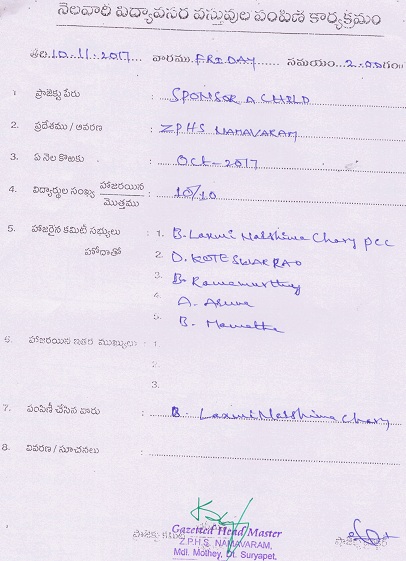 నెలవారి విద్యావసర వస్తువుల పంపిణి కార్యక్రమం
తేది.10.11-2017... వారము.FRIDAY...... సమయం...2-00గం॥
1 ప్రాజెక్టు పేరు : SPONSOR A CHILD
2. ప్రదేశము / ఆవరణ : ZPHS NAMAVARAM
3. ఏ నెల కొఱకు : Oct-2017
4. విద్యార్థుల సంఖ్య హాజరయిన/మొత్తము : 10/10
5. హాజరైన కమిటీ సభ్యులు : 1. B. Laxmi Nalshima Chary PCC
హోదాతో 2. D. KOTESWAR RAO
3. B. Ramamurthy
4. A. Aruna
5. B. Mamatha
6. హాజరయిన ఇతర ముఖ్యులు : 1.
2.
3.
7. పంపిణీ చేసిన వారు : B. Laxmi Nalshima Chary
8. వివరణ / సూచనలు :
ప్రాజెక్టు కమిటీ
Gazetted Head Master
Z.P.H.S. NAMAVARAM,
Mdl. Mothey, Dt. Suryapet,